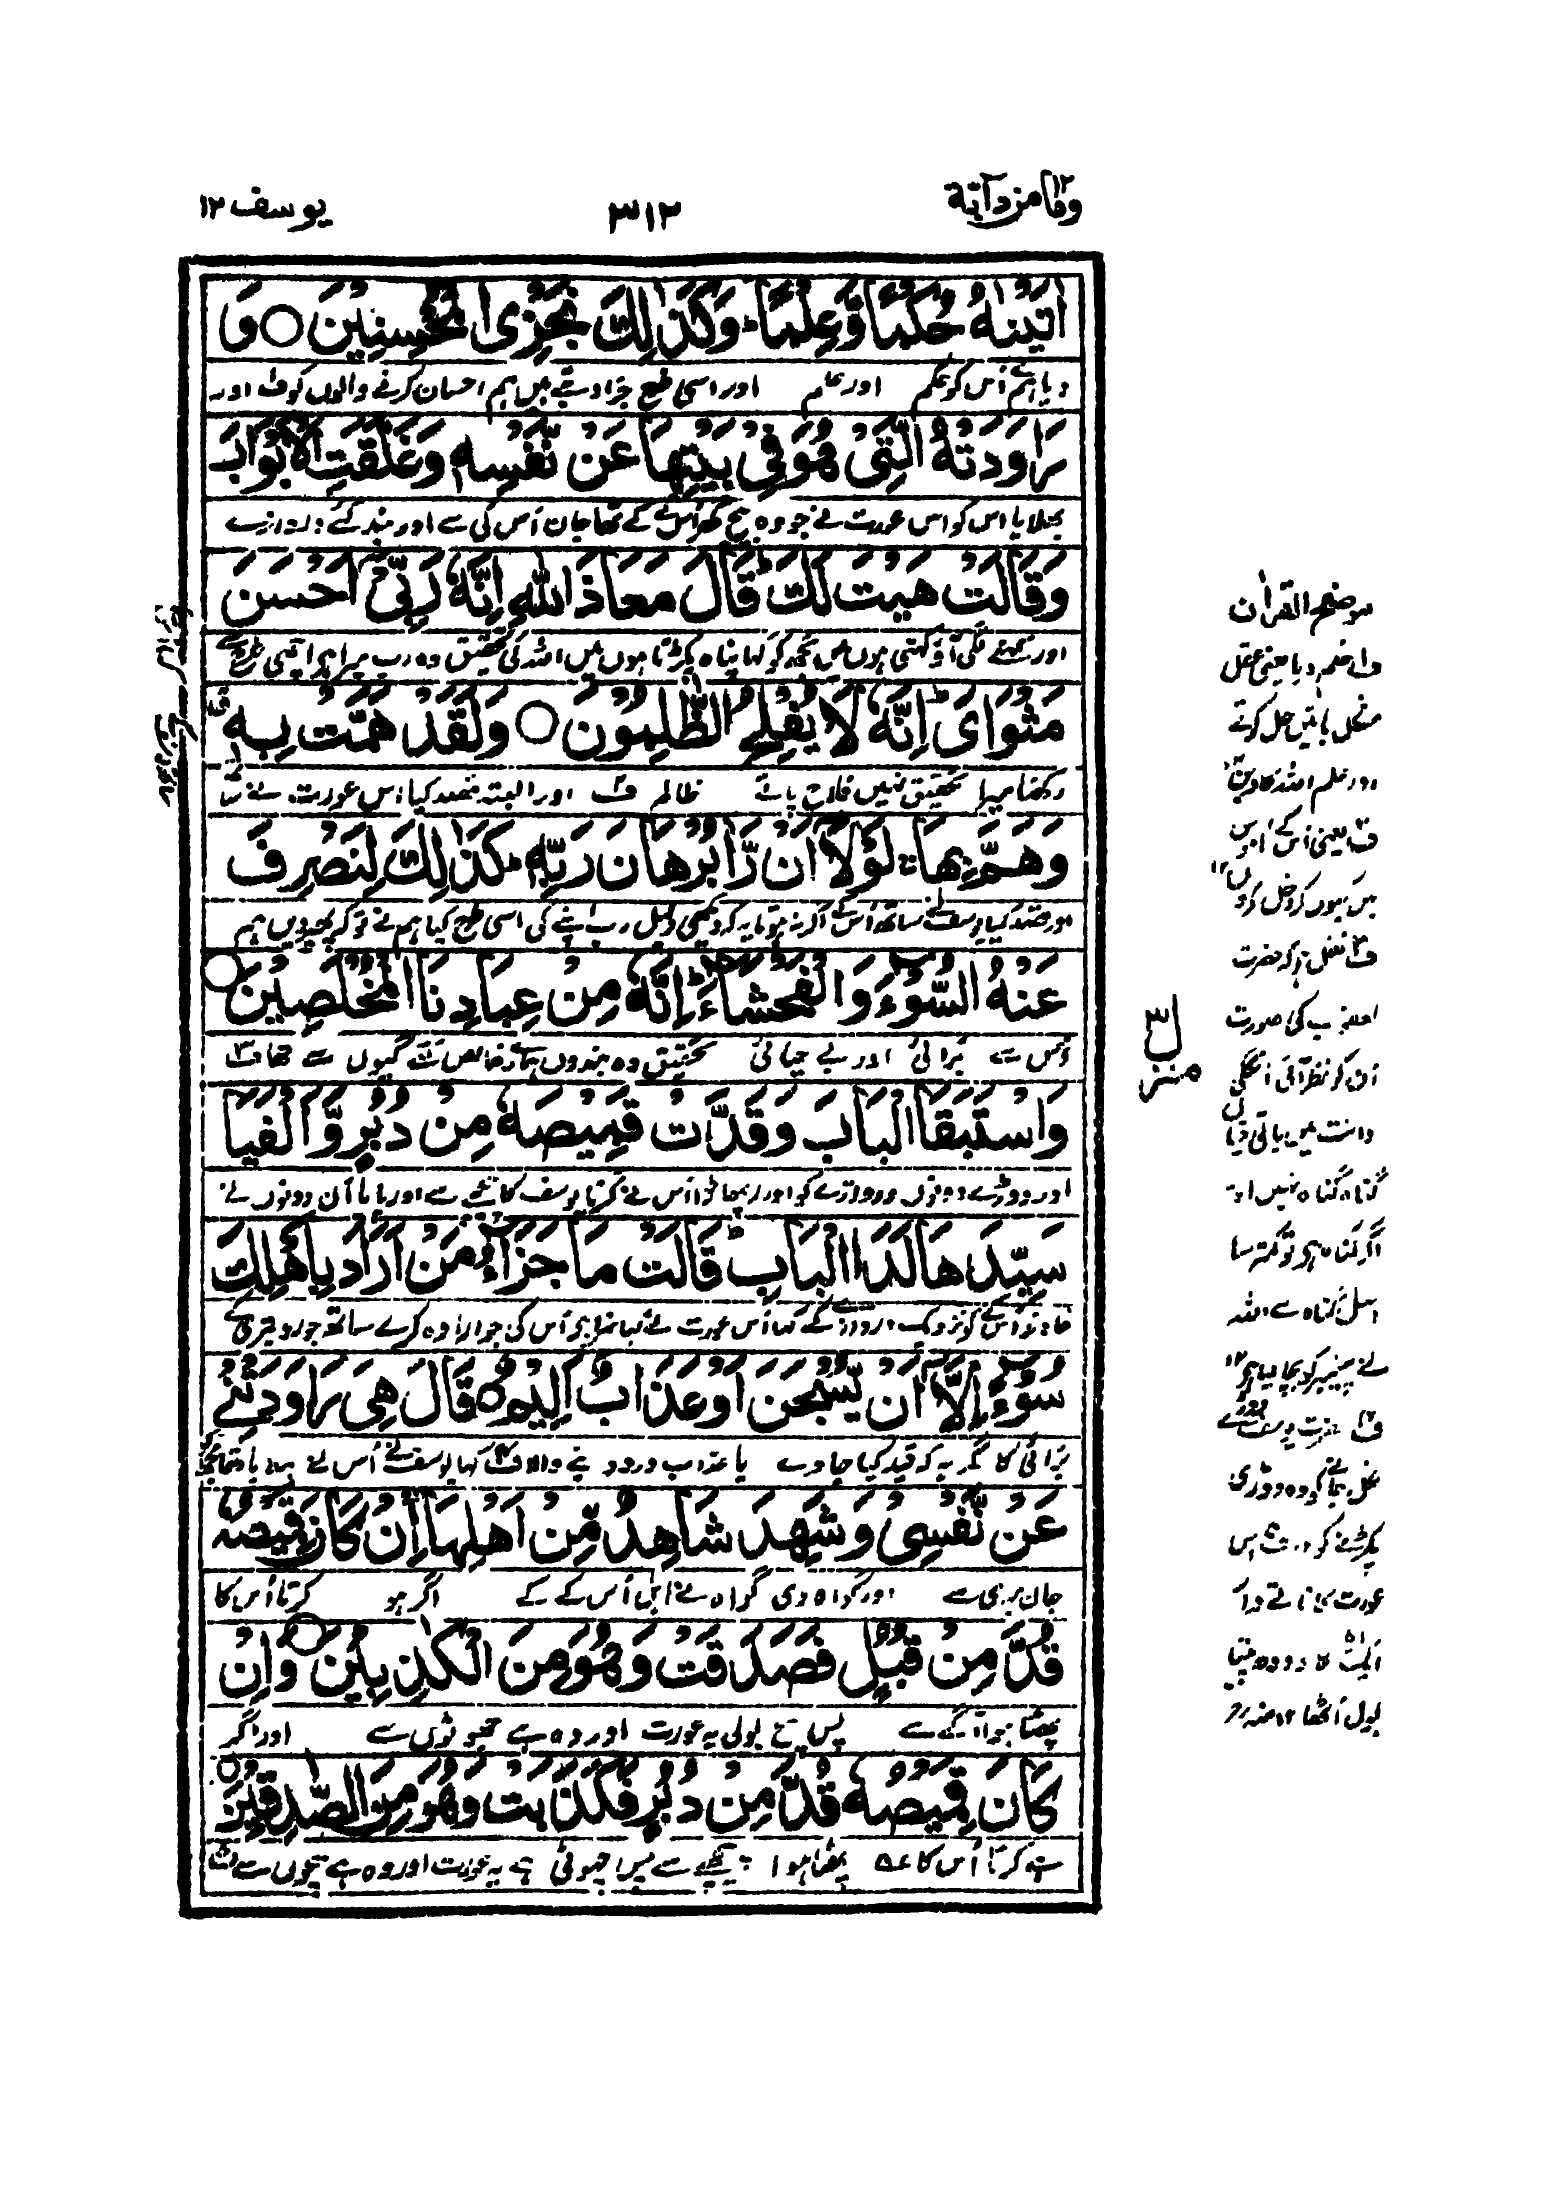 وما من دآبة ١٢
٣١٢
يوسف ١٢
اٰتَيْنٰهُ حُكْمًا وَّعِلْمًا ؕ وَكَذٰلِكَ نَجْزِى الْمُحْسِنِيْنَ ○ وَ
دیا ہم نے اُس کو حکم اور علم اور اسی طرح جزا دیتے ہیں ہم احسان کرنے والوں کو ف اور
رَاوَدَتْهُ الَّتِىْ هُوَ فِىْ بَيْتِهَا عَنْ نَّفْسِهٖ وَغَلَّقَتِ الْاَبْوَابَ
پھلایا اس کو اس عورت نے جو وہ بیچ گھر اُس کے کے تھا جان اُس کی سے اور بند کئے دروازے
وَقَالَتْ هَيْتَ لَكَ ؕ قَالَ مَعَاذَ اللّٰهِ اِنَّهٗ رَبِّىْٓ اَحْسَنَ
اور کہنے لگی آؤ کہتی ہوں میں تجھ کو کہا پناہ پکڑتا ہوں میں اللہ کی تحقیق وہ رب میرا ہے اچھی طرح سے
مَثْوَاىَ ؕ اِنَّهٗ لَا يُفْلِحُ الظّٰلِمُوْنَ ○ وَلَقَدْ هَمَّتْ بِهٖ
رکھنا میرا تحقیق نہیں فلاح پاتے ظالم ف اور البتہ قصد کیا اس عورت نے
وَهَمَّ بِهَا ۚ لَوْلَاۤ اَنْ رَّاٰ بُرْهَانَ رَبِّهٖ ؕ كَذٰلِكَ لِنَصْرِفَ
اور قصد کیا یوسف نے ساتھ اُس کے اگر نہ ہوتا یہ کہ دیکھی دلیل رب اپنے کی اسی طرح کیا ہم نے تو کہ پھیر دیں ہم
عَنْهُ السُّوْٓءَ وَالْفَحْشَآءَ ؕ اِنَّهٗ مِنْ عِبَادِنَا الْمُخْلَصِيْنَ ○
اُس سے بُرائی اور بے حیائی تحقیق وہ بندوں ہمارے خالص کئے گیوں سے تھا ف
وَاسْتَبَقَا الْبَابَ وَقَدَّتْ قَمِيْصَهٗ مِنْ دُبُرٍ وَّاَلْفَيَا
اور دوڑے دونوں دروازے کو اور پھاڑا اُس نے کرتا یوسف کا پیچھے سے اور پایا اُن دونوں نے
سَيِّدَهَا لَدَا الْبَابِ ؕ قَالَتْ مَا جَزَآءُ مَنْ اَرَادَ بِاَهْلِكَ
خاوند اُس کے کو نزدیک دروازے کے کہا اُس عورت نے کیا سزا ہے اُس کی جو ارادہ کرے ساتھ جورو تیری کے
سُوْٓءًا اِلَّاۤ اَنْ يُّسْجَنَ اَوْ عَذَابٌ اَلِيْمٌ ○ قَالَ هِىَ رَاوَدَتْنِىْ
بُرائی کا مگر یہ کہ قید کیا جاوے یا عذاب درد دینے والا ف کہا یوسف نے اُس نے
عَنْ نَّفْسِىْ وَشَهِدَ شَاهِدٌ مِّنْ اَهْلِهَا ۚ اِنْ كَانَ قَمِيْصُهٗ
جان میری سے اور گواہ دی گواہ نے اہل اُس کے کے اگر ہو کرتا اُس کا
قُدَّ مِنْ قُبُلٍ فَصَدَقَتْ وَهُوَ مِنَ الْكٰذِبِيْنَ ○ وَاِنْ
پھٹا ہوا آگے سے پس سچ بولی یہ عورت اور وہ ہے جھوٹوں سے اور اگر
كَانَ قَمِيْصُهٗ قُدَّ مِنْ دُبُرٍ فَكَذَبَتْ وَهُوَ مِنَ الصّٰدِقِيْنَ ○
ہے کرتا اُس کا پھٹا ہوا پیچھے سے پس جھوٹی ہے یہ عورت اور وہ ہے سچوں سے ف
منزل ٣
موضح القرآن
ف حکم دیا یعنی عقل
مشکل باتیں حل کرتے
اور علم اللہ کا دین
ف یعنی اس کے
میں کیوں کر دخل کروں ١٢
ف نقل ہے کہ حضرت
یعقوب کی صورت
ان کو نظر آئی انگلی
دانت میں
گناہ گناہ نہیں
اگر گناہ ہے تو کمتر سا
اصل گناہ سے اللہ
نے پیغمبر کو بچا لیا ہے ١٢
ف حضرت یوسف دوڑے
نکل جانے کو وہ دوڑی
پکڑنے کو اس
عورت
ایک کا دودھ پیتا
بول اُٹھا ١٢ منہ رح